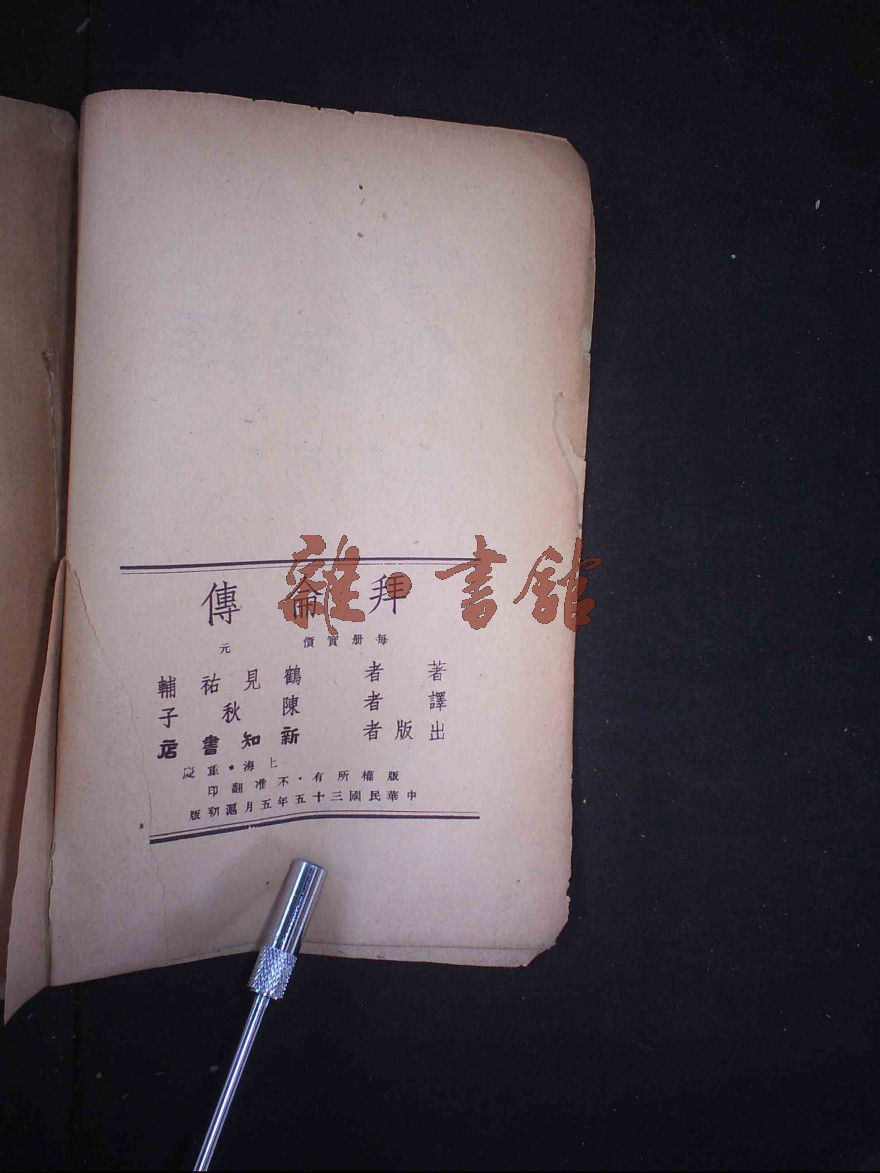 拜倫傳
每冊實價 元
著者 鶴見祐輔
譯者 陳秋子
出版者 新知書店
上海・重慶
版權所有・不准翻印
中華民國三十五年五月滬初版
雜・書館